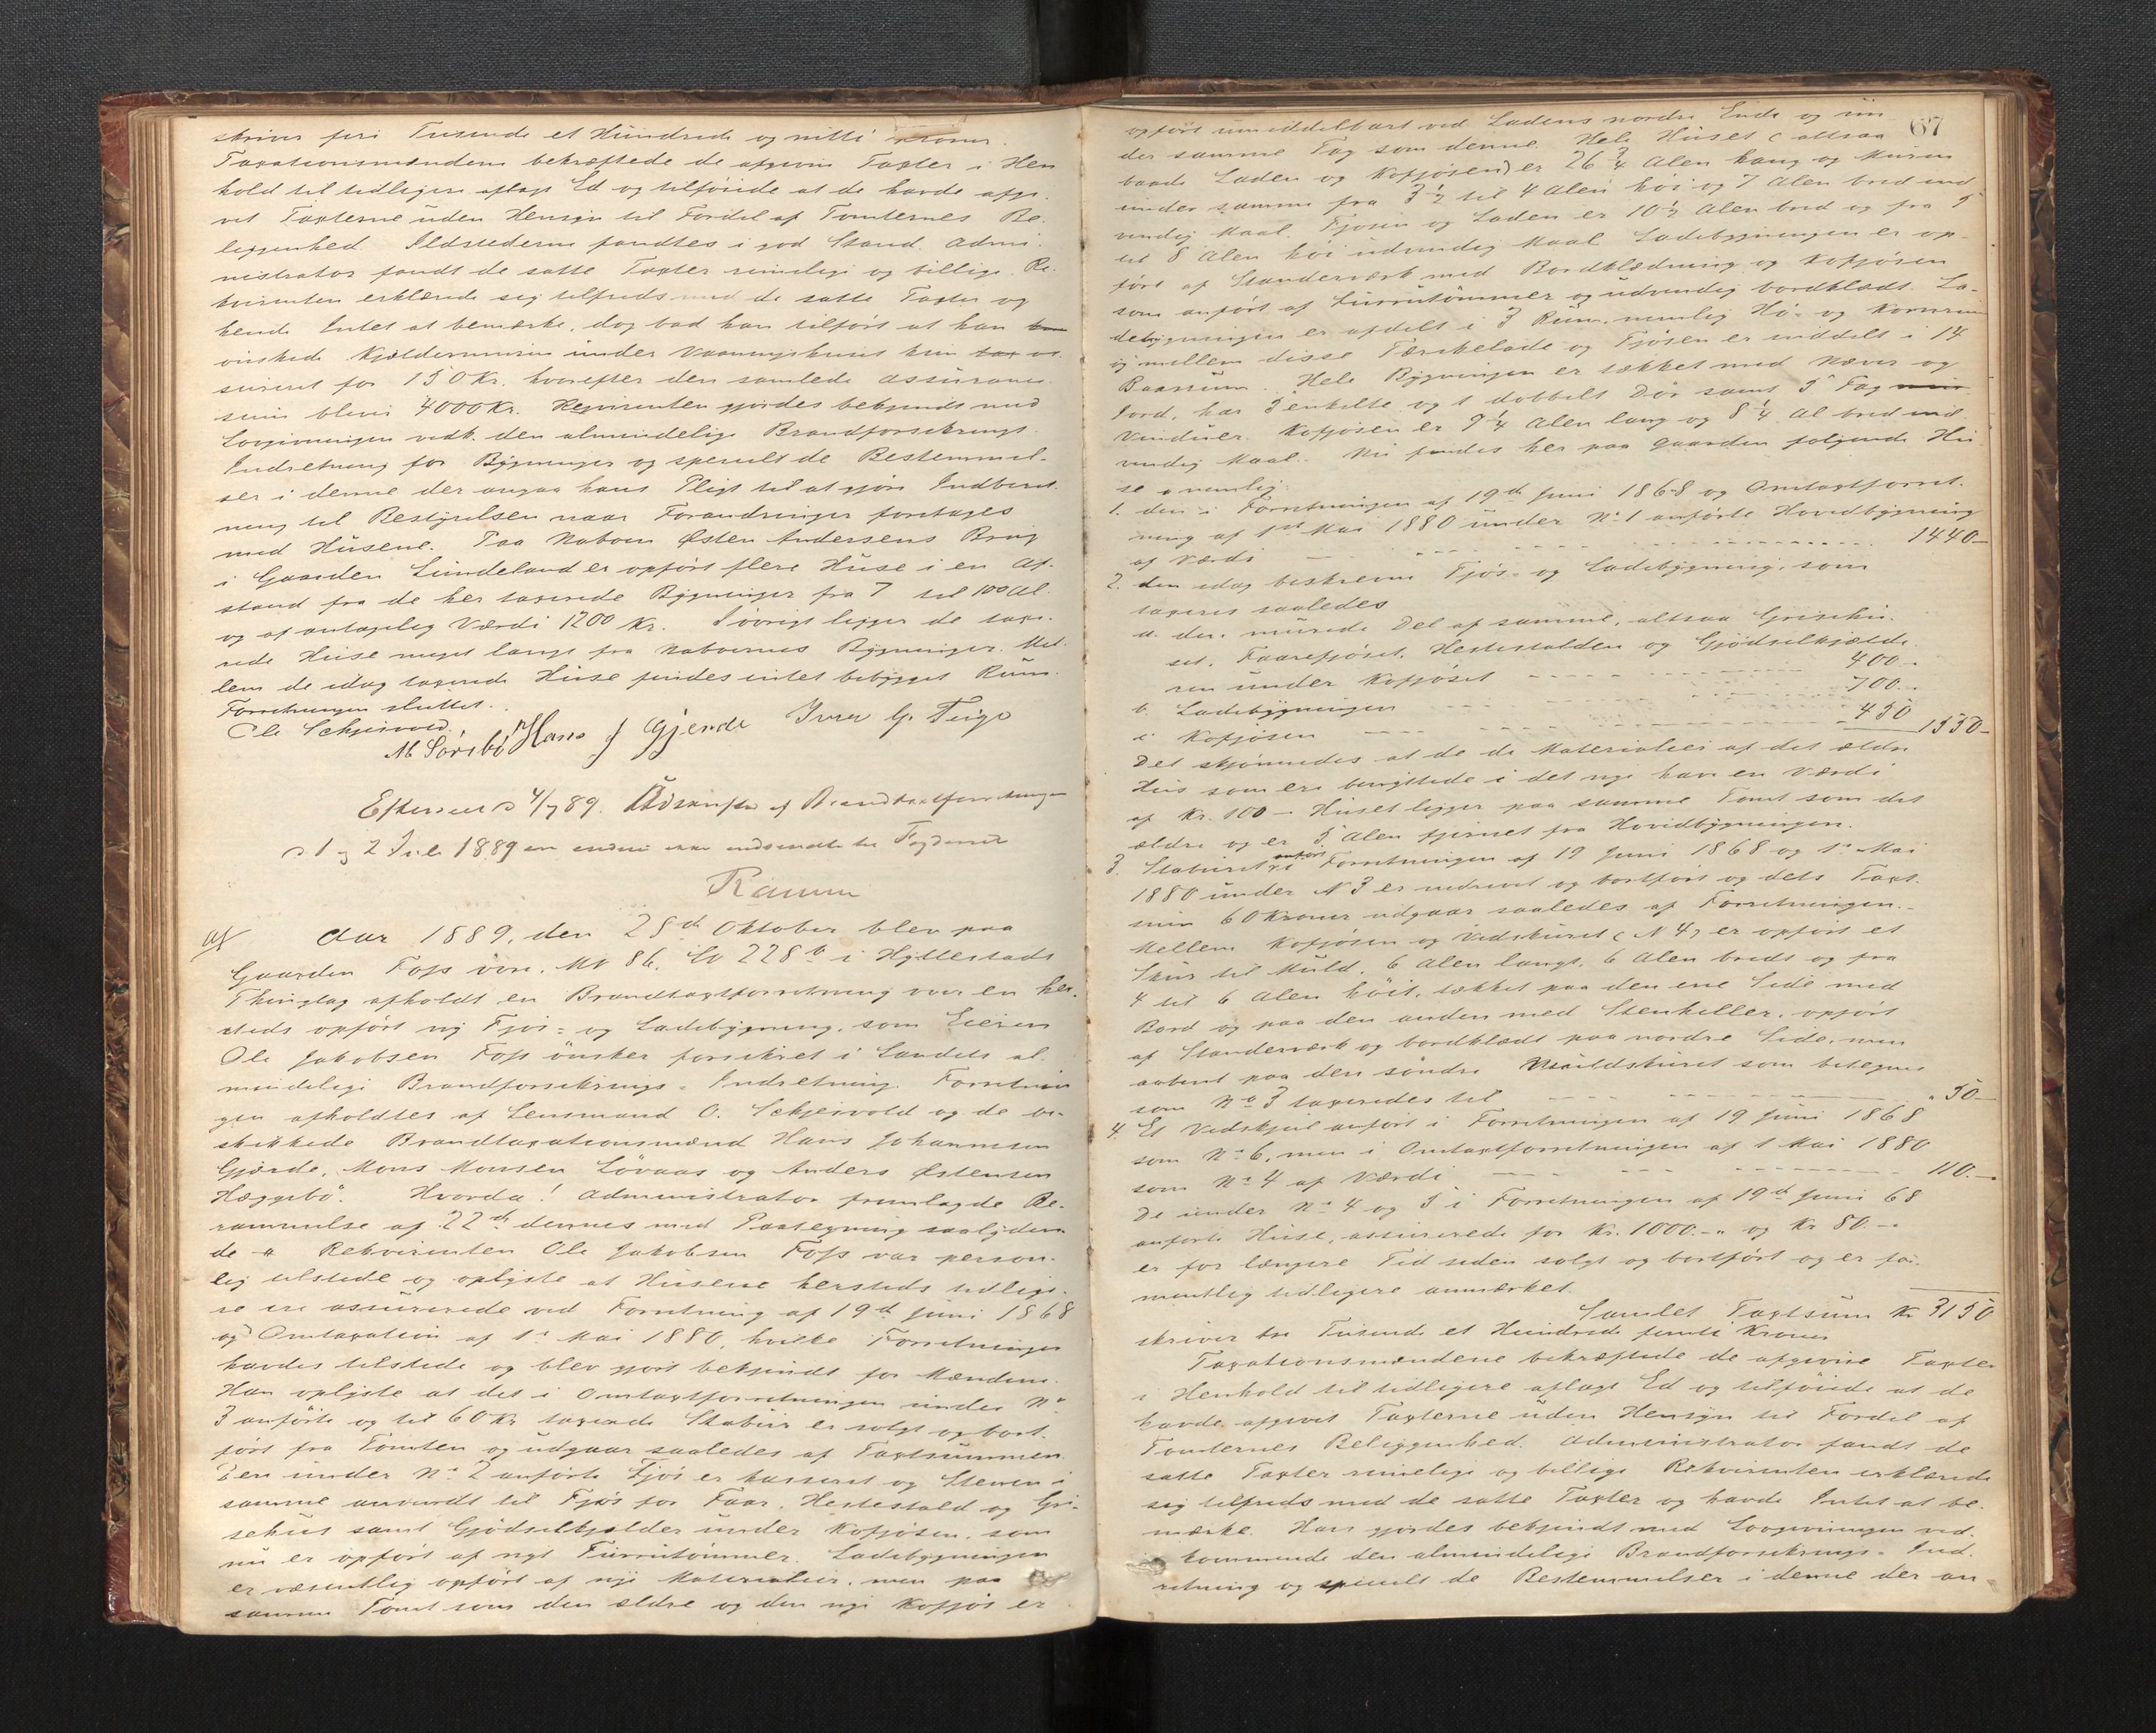 skriver fire Tusende et Hundrede og nitti Kroner.
Taxationsmændene bekræftede de afgivne Taxter i Hen
hold til tidligere aflagt Ed og tilföiede at de havde afgi-
vet Taxterne uden Hensyn til Fordel af Tomternes Be-
liggenhed. Ildstederne fandtes i god Stand. Admi-
nistrator fandt de satte Taxter rimelige og billige. Re-
kvirenten erklærede sig tilfreds med de satte Taxter og
havde Intet at bemærke, dog bad han tilfört at han
önskede Kjældermuren under Vaaningshuset kun as-
sureret for 150 Kr. hvorefter den samlede Assurance
sum bliver 4000 Kr. Requirenten gjordes bekjendt med
Lovgivningen vedk. den almindelige Brandforsikrings
Indretning for Bygninger og specielt de Bestemmel-
ser i denne der angaa hans Pligt til at gjöre Indberet-
ning til Bestyrelsen naar Forandringer foretages
med Husene. Paa Naboen Østen Andersens Brug
i Gaarden Lundeland er opfört flere Huse i en Af-
stand fra de her taxerede Bygninger fra 7 til 100 Al.
og af antagelig Værdi 1200 Kr. Iövrigt ligger de taxe-
rede Huse meget langt fra Naboernes Bygninger. Mel-
lem de idag taxerede Huse findes intet bebygget Rum.
Forretningen sluttet.
Ole Schjervold. M Sörebö Hans J Gjerde Iver G. Teige
Efterseet d 4/7 89. Udskrift af Brandtaxtforretningen
d 1 og 2 Juli 1889 er endnu ikke indsendt til Fogderiet
Ramm
Aar 1889, den 25de Oktober blev paa
Gaarden Foss övre, M№ 86, L№ 228 b i Hyllestads
Thinglag afholdt en Brandtaxtforretning over en her-
steds opfört ny Fjös- og Ladebygning, som Eieren
Ole Jakobsen Foss önsker forsikret i Landets al-
mindelige Brandforsikrings-Indretning. Forretnin
gen afholdtes af Lensmand O. Schjervold og de op-
skikkede Brandtaxationsmænd Hans Johannesen
Gjerde, Mons Monsen Lövaas og Anders Østensen
Hæggebö. Hvorda! Administrator fremlagde Be-
rammelse af 22de dennes med Paategning saalyden
de " Rekvirenten Ole Jakobsen Foss var person-
lig tilstede og oplyste at Husene hersteds tidlige-
re ere assurerede ved Forretning af 19de Juni 1868
og Omtaxation af 1ste Mai 1880, hvilke Forretninger
havdes tilstede og blev gjort bekjendt for Mændene.
Han oplyste at det i Omtaxtforretningen under No
3 anförte og til 60 Kr taxerede Stabur er solgt og bort-
fört fra Tomten og udgaar saaledes af Taxtsummen.
Den under No 2 anförte Fjös er kasseret og Stenen i
samme anvendt til Fjös for Faar, Hestestald og Gri-
sehus samt Gjödselkjelder under Kofjösen, som
nu er opfört af nyt Furrutömmer. Ladebygningen
er væsentlig opfört af nye Materialier, men paa
samme Tomt som den ældre og den nye Kofjös er
67
opfört umiddelbart ved Ladens nordre Ende og un-
der samme Tag som denne. Hele Huset (altsaa
baade Laden og Kofjösen) er 26 3/4 Alen lang og Muren
under samme fra 3 1/2 til 4 Alen höi og 7 Alen bred ind
vendig Maal. Fjösen og Laden er 10 1/2 Alen bred og fra 5
til 8 Alen höi udvendig Maal. Ladebygningen er op-
fört af Standerværk med Bordklædning og Kofjösen
som anfört af Furrutömmer og udvendig bordklædt. La-
debygningen er afdelt i 3 Rum, nemlig Hö- og Kornrum
og mellem disse Tærskelade og Fjösen er inddelt i 14
Baasrum. Hele Bygningen er tækket med Næver og
Jord, har 5 enkelte og 1 dobbelt Dör samt 5 Fag
Vinduer. Kofjösen er 9 1/4 Alen lang og 8 1/4 Al bred ind-
vendig Maal. Nu findes her paa Gaarden fölgende Hu
se nemlig:
1. den i Forretningen af 19de Juni 1868 og Omtaxtforret-
ning af 1ste Mai 1880 under No 1 anförte Hovedbygning
af Værdi 1440-
2. den idag beskrevne Fjös- og Ladebygning, som
taxeres saaledes
a. den murede Del af samme, altsaa Grisehu-
set, Faarefjöset, Hestestalden og Gjödselkjælde-
ren under Kofjöset 400-
b. Ladebygningen 700-
c. Kofjösen 450 1550-
Det skjönnedes at de de Materialier af det ældre
Hus som ere benyttede i det nye have en Værdi
af Kr. 100 - Huset ligger paa samme Tomt som det
ældre og er 5 Alen fjernet fra Hovedbygningen.
3. Staburet anfört i Forretningen af 19 Juni 1868 og 1ste Mai
1880 under N 3 er nedrevet og bortfört og dets Taxt-
sum 60 Kroner udgaar saaledes af Forretningen.-
Mellem Kofjösen og Vedskuret (N 4) er opfört et
Skur til Muld, 6 Alen langt, 6 Alen bredt og fra
4 til 6 Alen höit, tækket paa den ene Side med
Bord og paa den anden med Stenheller, opfört
af Standerværk og bordklædt paa nordre Side, men
aabent paa den söndre. Muldskuret som betegnes
som No 3 taxeredes til " 50-
4. Et Vedskjul anfört i Forretningen af 19 Juni 1868
som No 6, men i Omtaxtforretningen af 1 Mai 1880
som No 4 af Værdi 110.-
De under No 4 og 5 i Forretningen af 19de Juni 68
anförte Huse, assurerede for Kr. 1000.-" og Kr 80.-
er for længere Tid siden solgt og bortfört og er for-
mentlig tidligere anmærket.
Samlet Taxtsum Kr 3150
skriver tre Tusende et Hundrede femti Kroner
Taxationsmændene bekræftede de afgivne Taxter
i Henhold til tidligere aflagt Ed og tilföiede at de
havde afgivet Taxterne uden Hensyn til Fordel af
Tomternes Beliggenhed. Administrator fandt de
satte Taxter rimelige og billige. Rekvirenten erklærede
sig tilfreds med de satte Taxter og havde Intet at be-
mærke. Han gjordes bekjendt med Lovgivningen ved-
kommende den almindelige Brandforsikrings-Ind-
retning og specielt de Bestemmelser i denne der an